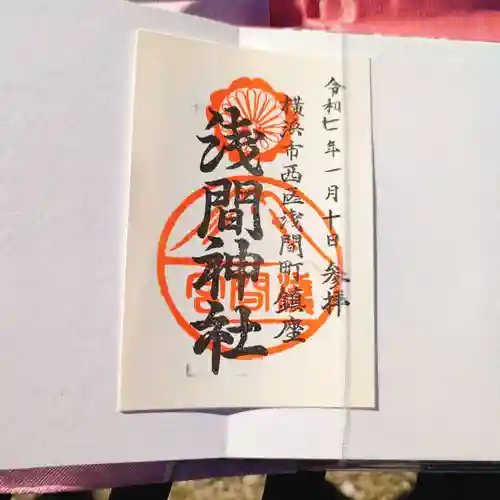 令和七年一月十日参拝
横浜市西区浅間町鎮座
浅間神社